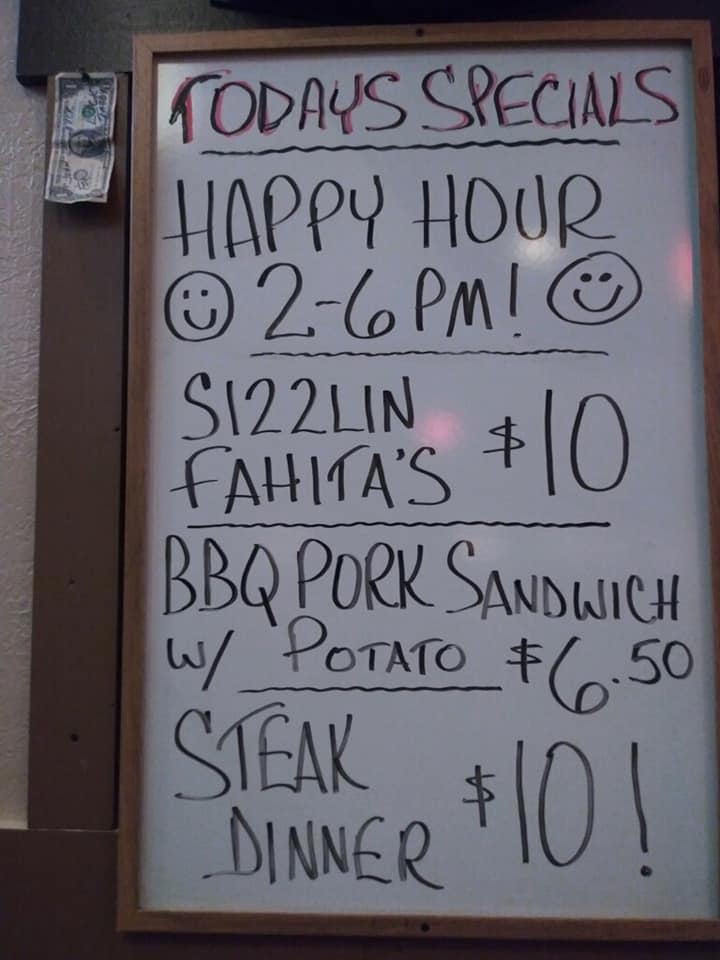 TODAYS SPECIALS
HAPPY HOUR
2-6 PM!
SIZZLIN
FAHITA'S $10
BBQ PORK SANDWICH
W/ POTATO $6.50
STEAK
DINNER $10!